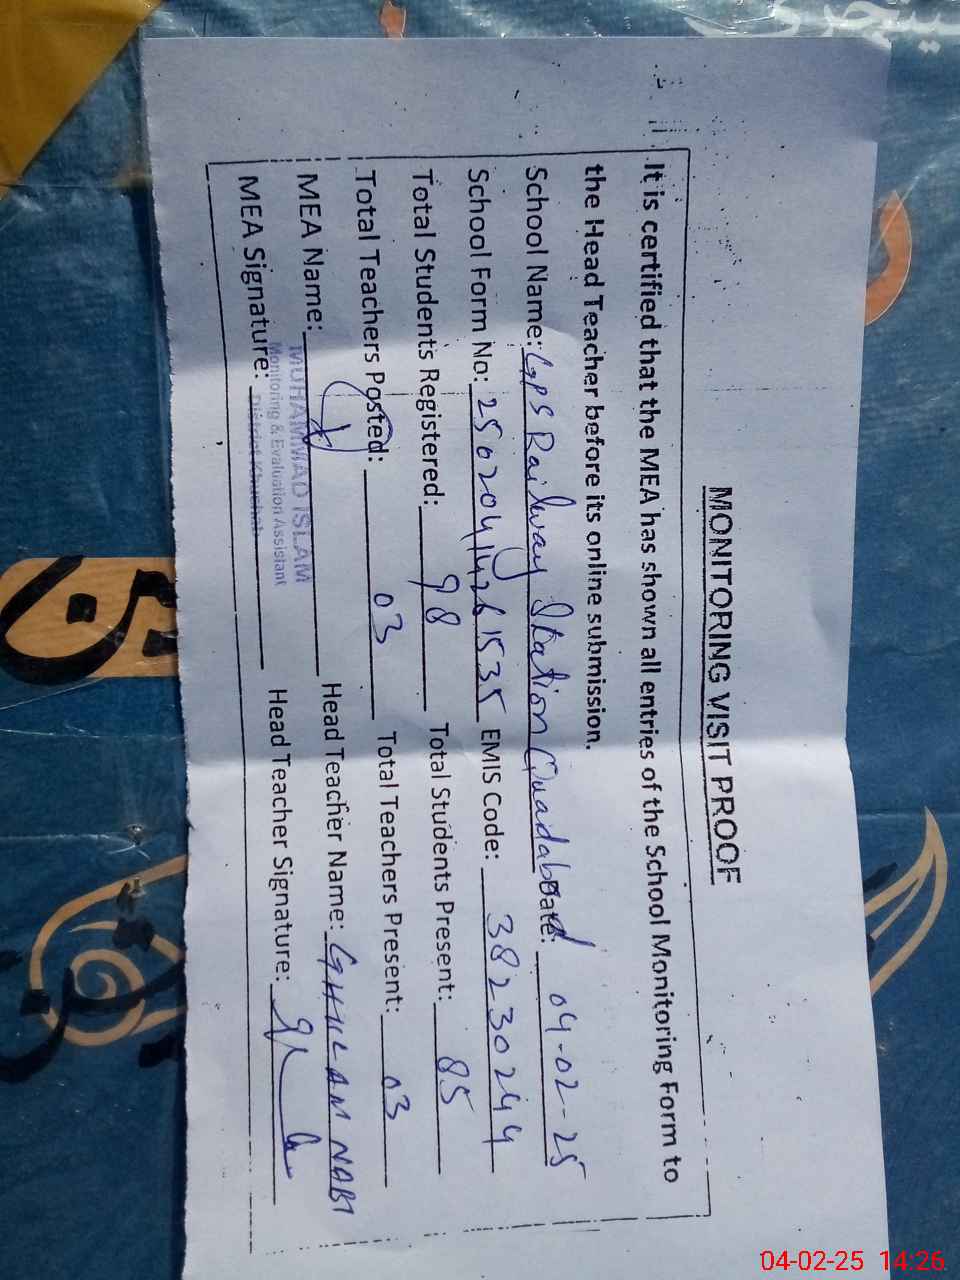 MONITORING VISIT PROOF
It is certified that the MEA has shown all entries of the School Monitoring Form to
the Head Teacher before its online submission.
School Name: GPS Railway Station Quadabad Date: 04-02-25
School Form No: EMIS Code: 38230244
Total Students Registered: 98 Total Students Present: 85
Total Teachers Posted: 03 Total Teachers Present: 03
MEA Name: MUHAMMAD ISLAM Head Teacher Name: GHULAM NABI
Monitoring & Evaluation Assistant
District Khushab
MEA Signature: Head Teacher Signature:
04-02-25 14:26